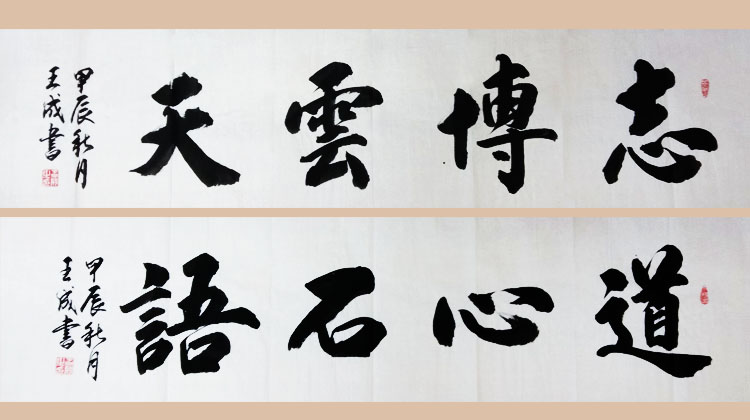 志博雲天
甲辰秋月
王成書
道心石語
甲辰秋月
王成書